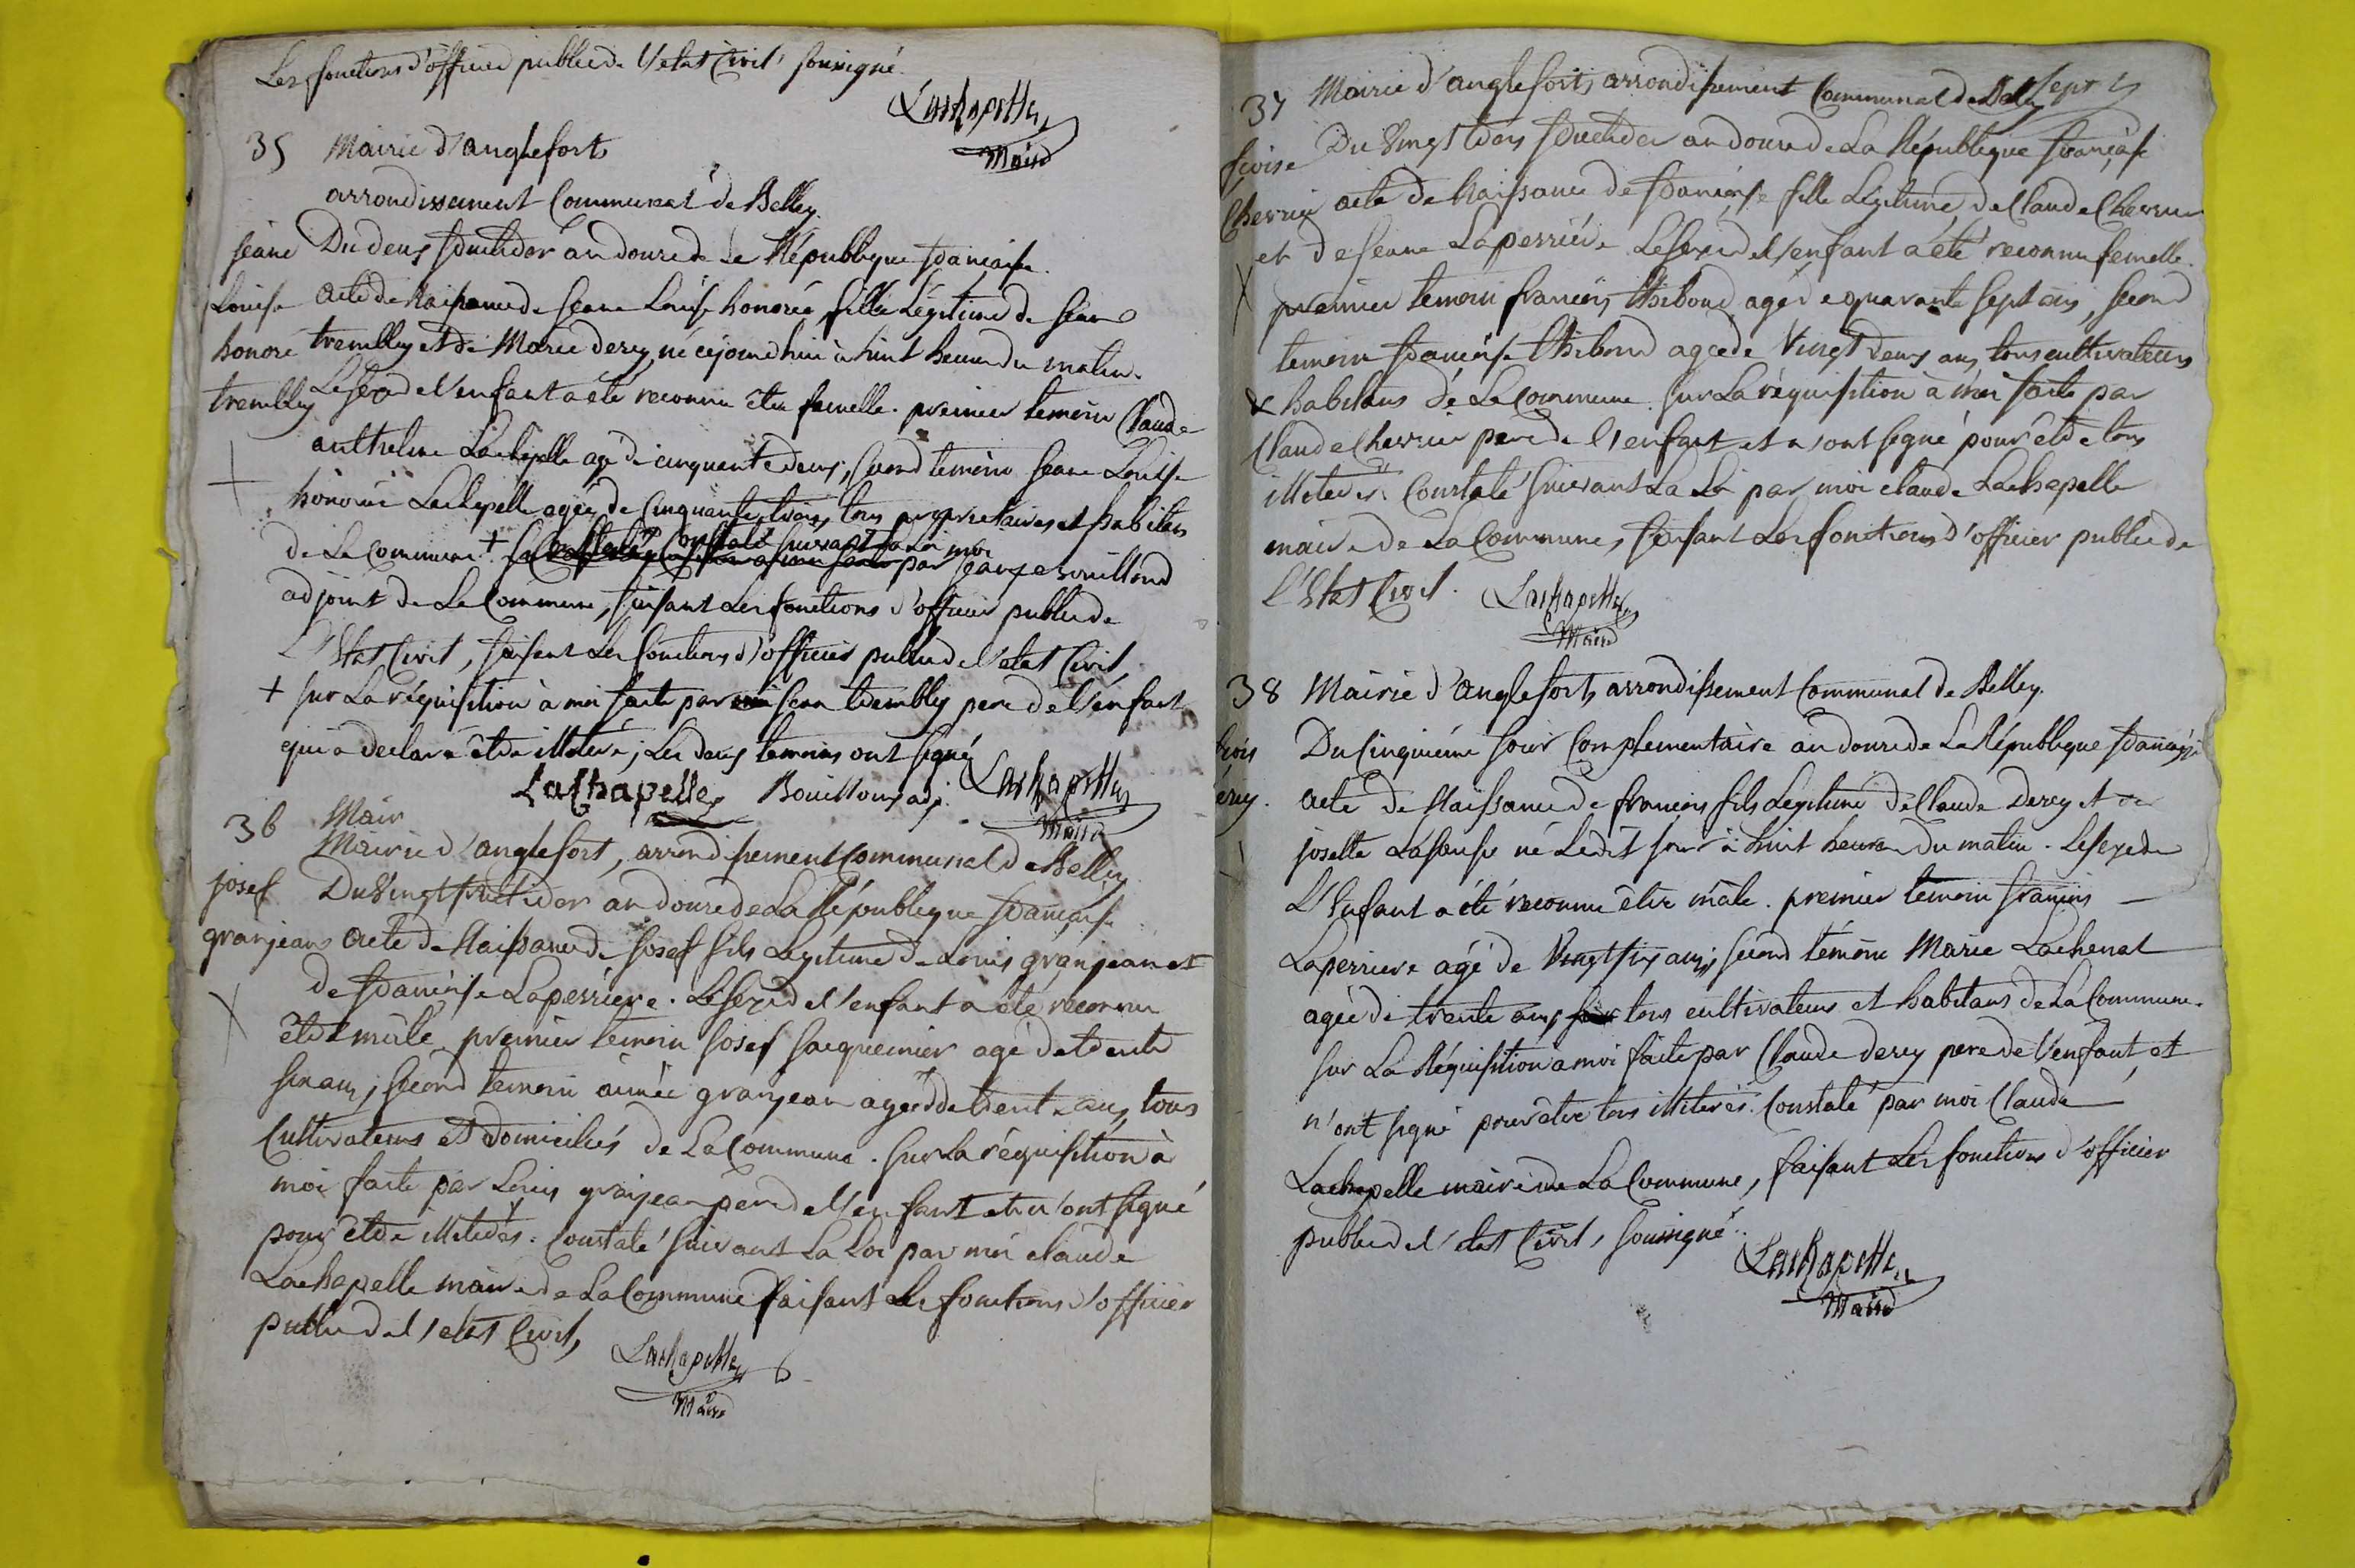 Les fonctions d'officier public de l'etat Civil soussigné.
Lachapelle
Maire
35 Mairie d'anglefort
arrondissement Communal de Belley.
jeane Du deux fructidor an douze de la République francaise.
Louise acte de Naissance de jeane Louise honorée fille Légitime de jean
honoré trembley et de Marie derey né cejourd'hui à huit heure du matin.
trembley Le sexe de l'enfant a eté reconnu être femelle. premier temoin Claude
anthelme Lachapelle agé de cinquante deux, second temoin jeane Louise
honorée Lachapelle agée de Cinquante trois, tous propriétaires et habitans
de La Commune. + Constaté suivant La Loi
par moi bouillond
adjoint de La Commune, faisant Les fonctions d'officier public de
L'Etat Civil, faisant Les fonctions d'officier public de l'etat Civil,
+ sur La réquisition à moi faite par jean trembley pere de l'enfant
qui a declaré être illiteré; Les deux temoins ont signé
Lachapelle Bouilloux adj. Lachapelle
Maire
36 Mair
Mairie d'anglefort, arrondissement Communal de Belley
josef Du Vingt fructidor an douze de La République francaise
granjean acte de Naissance de josef fils Legitime de Louis granjean et
de francoise Laperriere. Le sexe de l'enfant a été reconnu
être mâle. premier temoin josef jacquemier agé de trente
six ans, second temoin aimée granjean agée de trente ans, tous
Cultivateurs et domiciliés de La Commune. sur La réquisition à
moi faite par Louis granjean pere de l'enfant et n'ont signé
pour être illiterés. Constaté suivant La Loi par moi claude
Lachapelle maire de La Commune faisant Les fonctions d'officier
public de l'etat Civil,
Lachapelle
Maire
37 Mairie d'anglefort, arrondissement Communal de Belley sept
Du Vingt trois fructidor an douze de La République francaise
çoise
Cherrier acte de Naissance de francoise fille Légitime de Claude Cherrier
et de jeane Laperriére Le sexe de l'enfant a été reconnu femelle.
premier temoin francois thiboud agé de quarante sept ans, second
temoin francoise thiboud agée de Vingt deux ans, tous cultivateurs
& habitans de La Commune. sur La réquisition à moi faite par
Claude Cherrier pere de l'enfant et n'ont signé pour être tous
illiterés. Constaté suivant La Loi par moi claude Lachapelle
maire de La Commune, faisant Les fonctions d'officier public de
l'Etat Civil. Lachapelle
Maire
38 Mairie d'anglefort, arrondissement Communal de Belley.
çois Du Cinquiéme jour Complementaire an douze de La République francaise
érey. acte de Naissance de francois fils Legitime de Claude Derey et de
josette né Ledit jour à huit heures du matin. Le sexe de
L'Enfant a été reconnu être mâle. premier temoin francois
Laperriere agé de Vingt six ans, second témoin Marie Lachenal
agée de trente ans, tous cultivateurs et habitans de La Commune.
sur La Réquisition a moi faite par Claude derey pere de l'enfant, et
n'ont signé pour être tous illiterés. Constaté par moi Claude
Lachapelle maire de La Commune, faisant Les fonctions d'officier
public de l'etat Civil, soussigné.
Lachapelle
Maire